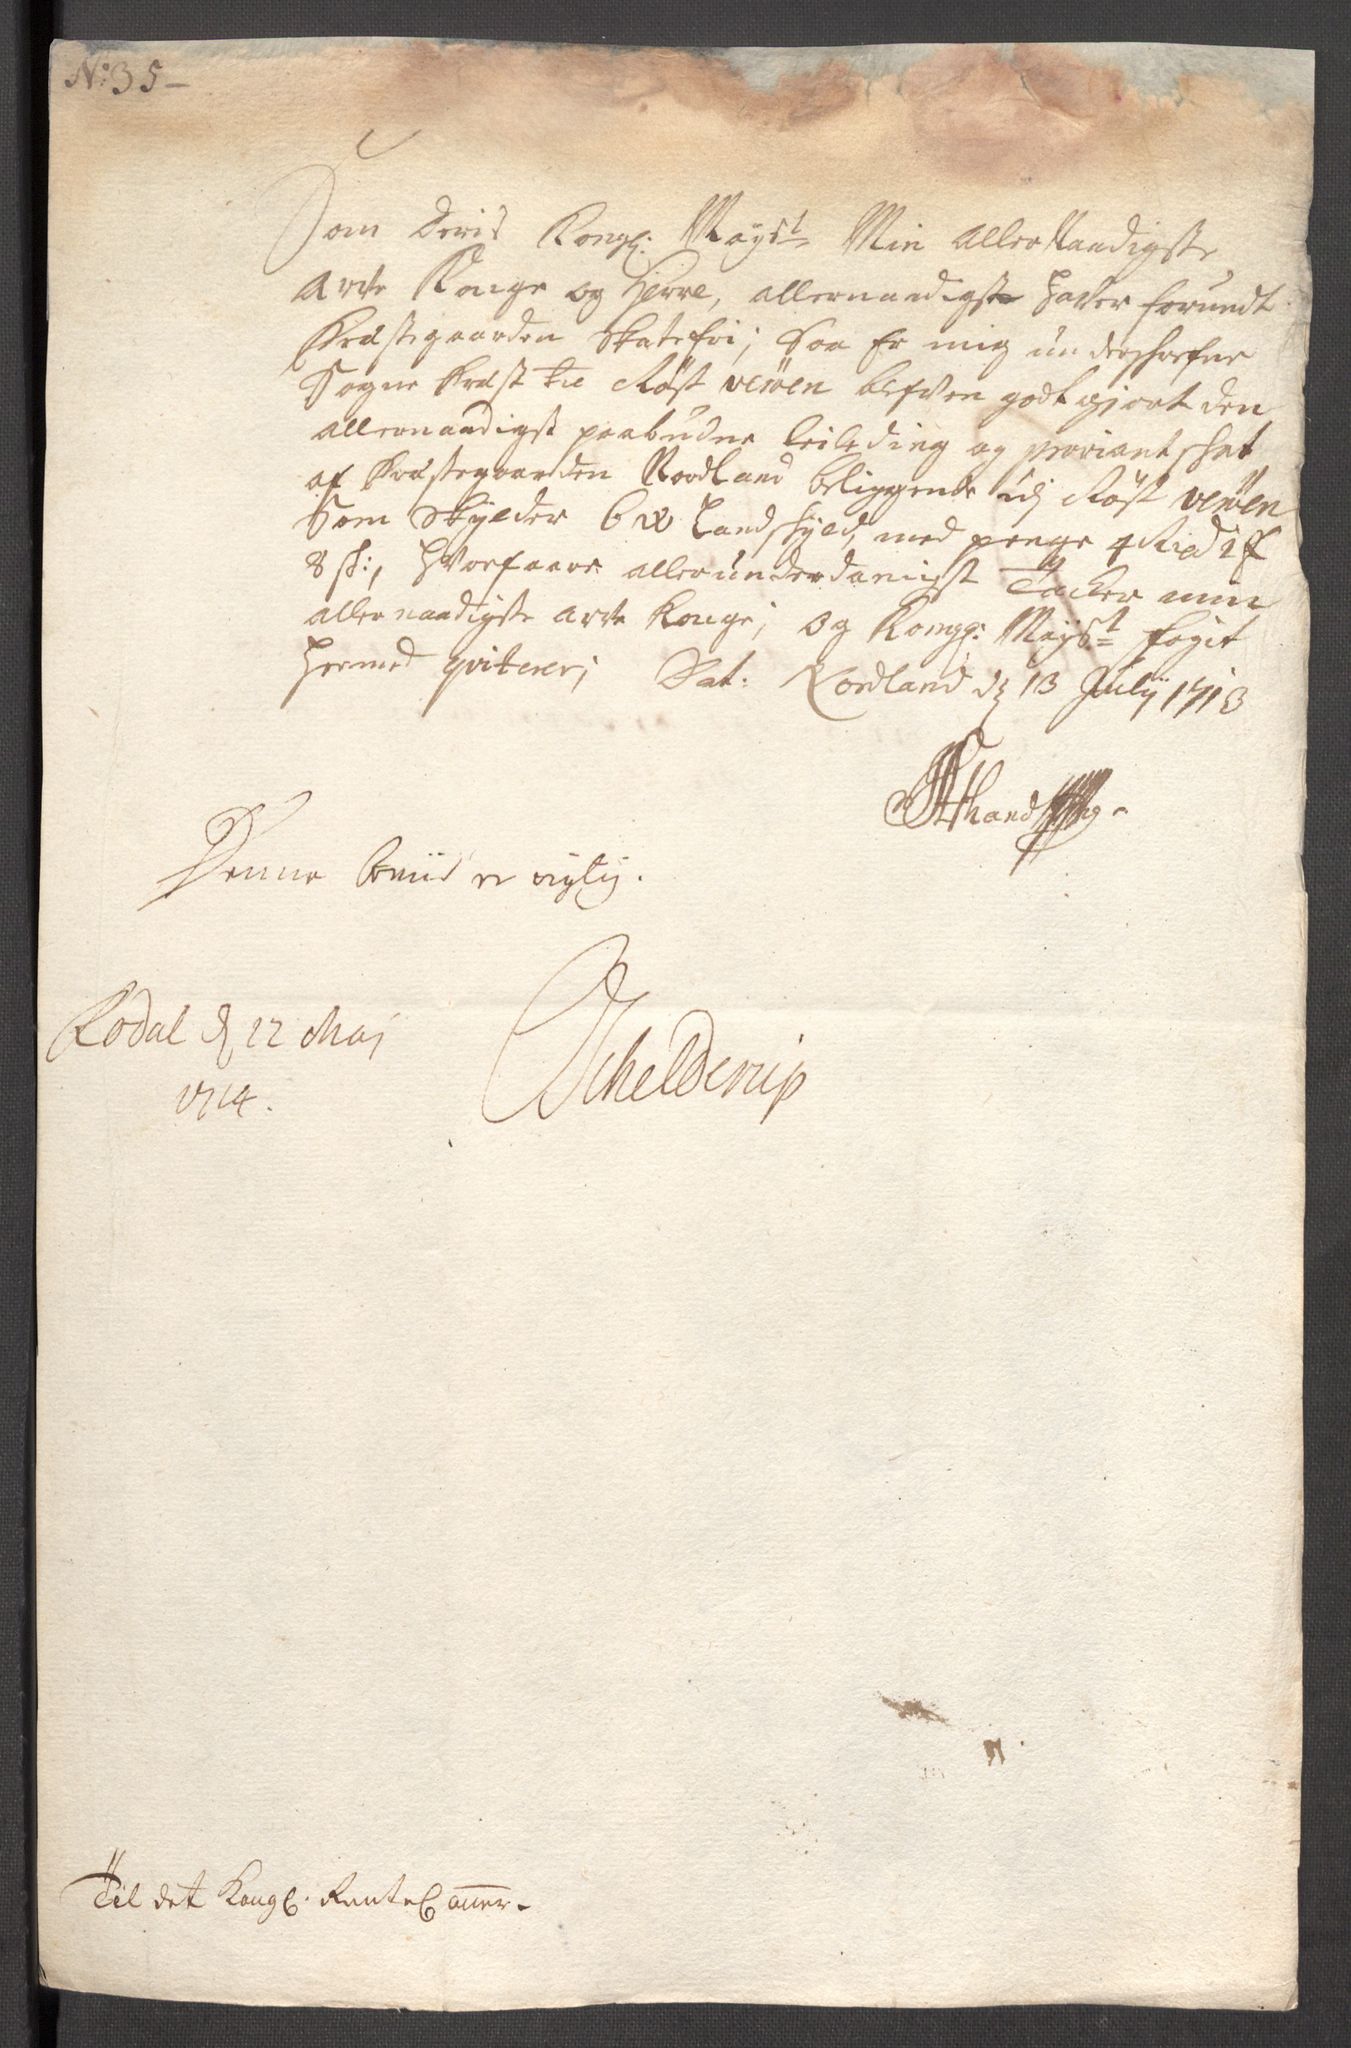 No: 35 -
Som Deris Kongl: Mayst: Min Aller Naadigste
Arve Konge og Herre, allernaadigst haver forundt
Præstegaarden Skatefri; Saa Er mig underskrefne
Sogne Præst til Røst verøen blefven godtgjort den
allernaadigst paabudne leilding og proviant skat
af Præstegaarden Nordland beliggende udj Røst verøen
Som skylder 6 w Landskyld, med penge 4 Rixd 2 #
8 sk:, Hvorfaare allerunderdanigst Tacker min
allernaadigste arve Konge; og Kongl: Mayst: foget
hermed qviterer; Dat: Nordland dj 13 Julij 1713
Denne bewiis er rigtig.
Rodal d 22 Maj
1714.
Schelderup
Til det Kongl. RenteCamer.